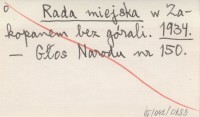 Rada miejska w Za-
kopanem bez górali. 1934.
— Głos Narodu nr 150.